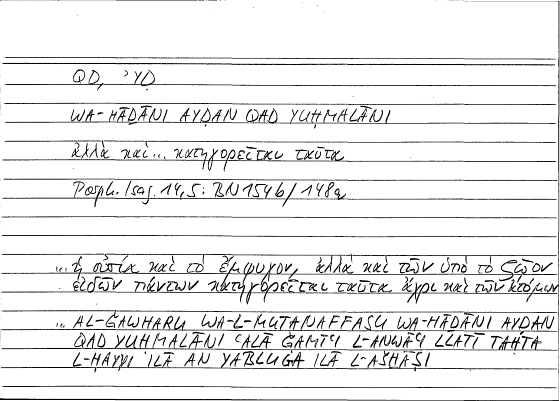 QD, ʾYḌ
WA-HĀḎĀNI AYḌAN QAD YUḤMALĀNI
ἀλλὰ καὶ... κατηγορεῖται ταῦτα
Porph. Isag. 14,5: BN 1546/148a
... ἡ οὐσία καὶ τὸ ἔμψυχον, ἀλλὰ καὶ τῶν ὑπὸ τὸ ζῷον
εἰδῶν πάντων κατηγορεῖται ταῦτα ἄχρι καὶ τῶν ἀτόμων
... AL-ǦAWHARU WA-L-MUTANAFFASU WA-HĀḎĀNI AYḌAN
QAD YUḤMALĀNI ʿALĀ ǦAMĪʿI L-ANWĀʿI LLATĪ TAḤTA
L-ḤAYYI ʾILĀ AN YABLUĠA ILĀ L-AŠḪĀṢI